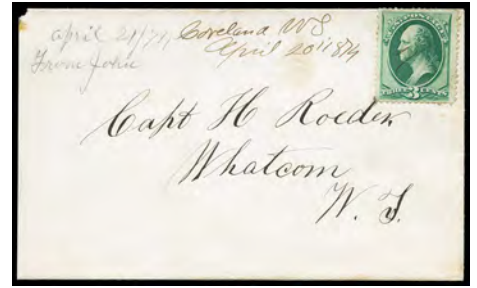 april 21/74,
From John
Coveland W T
April 20th 1874
U.S. POSTAGE
THREE 3 CENTS
Capt H Roeder
Whatcom
W. T.